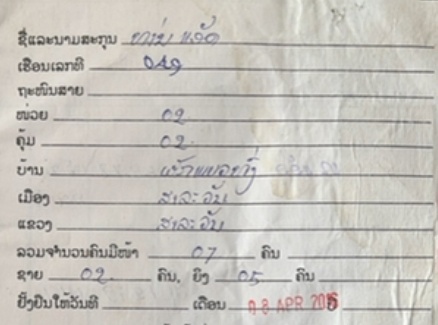 ຊື່ແລະນາມສະກຸນ ທ່ານ ແອັດ
ເຮືອນເລກທີ 049
ຖະໜົນສາຍ
ໜ່ວຍ 02
ຄຸ້ມ 02
ບ້ານ
ເມືອງ ສາລະວັນ
ແຂວງ ສາລະວັນ
ລວມຈຳນວນຄົນມີໜ້າ 07 ຄົນ
ຊາຍ 02 ຄົນ, ຍິງ 05 ຄົນ
ຢັ້ງຢືນໃຫ້ວັນທີ ເດືອນ 08 APR